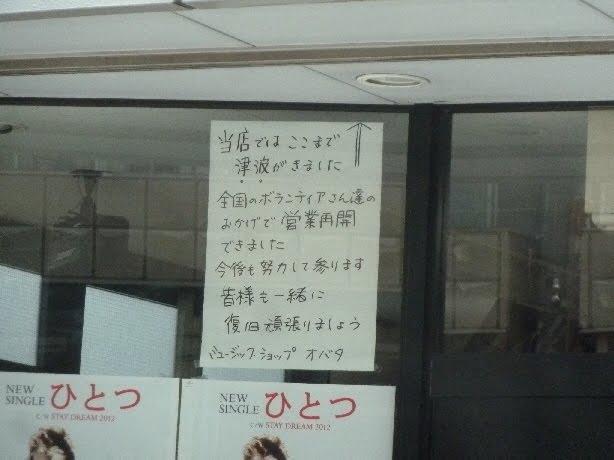 当店では ここまで ↑
津波がきました
全国のボランティアさん達の
おかげで 営業再開
できました
今後も努力して参ります
皆様も一緒に
復旧頑張りましょう
ミュージックショップ オバタ
NEW SINGLE ひとつ
C/W STAY DREAM 2012
NEW SINGLE ひとつ
C/W STAY DREAM 2012